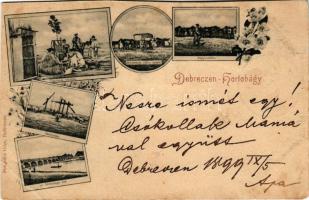 Debreczen-Hortobágy
Nesze ismét egy!
Csókollak Mamá
val együtt
Debreczen 1899 IX/5
Apa